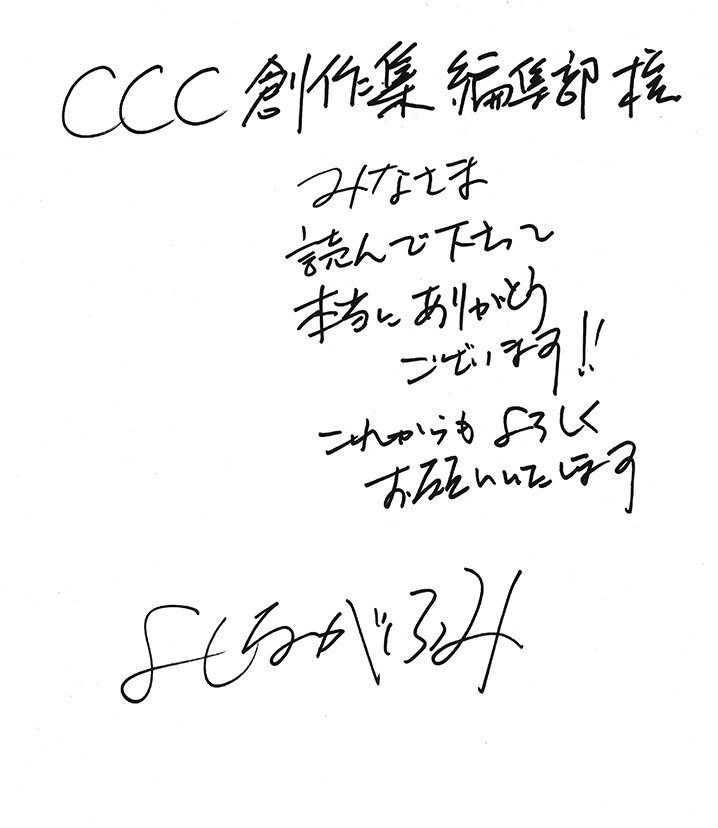 CCC創作集 編集部 様
みなさま
読んで下さって
本当にありがとう
ございます!!
これからもよろしく
お願いいたします
よしながふみ